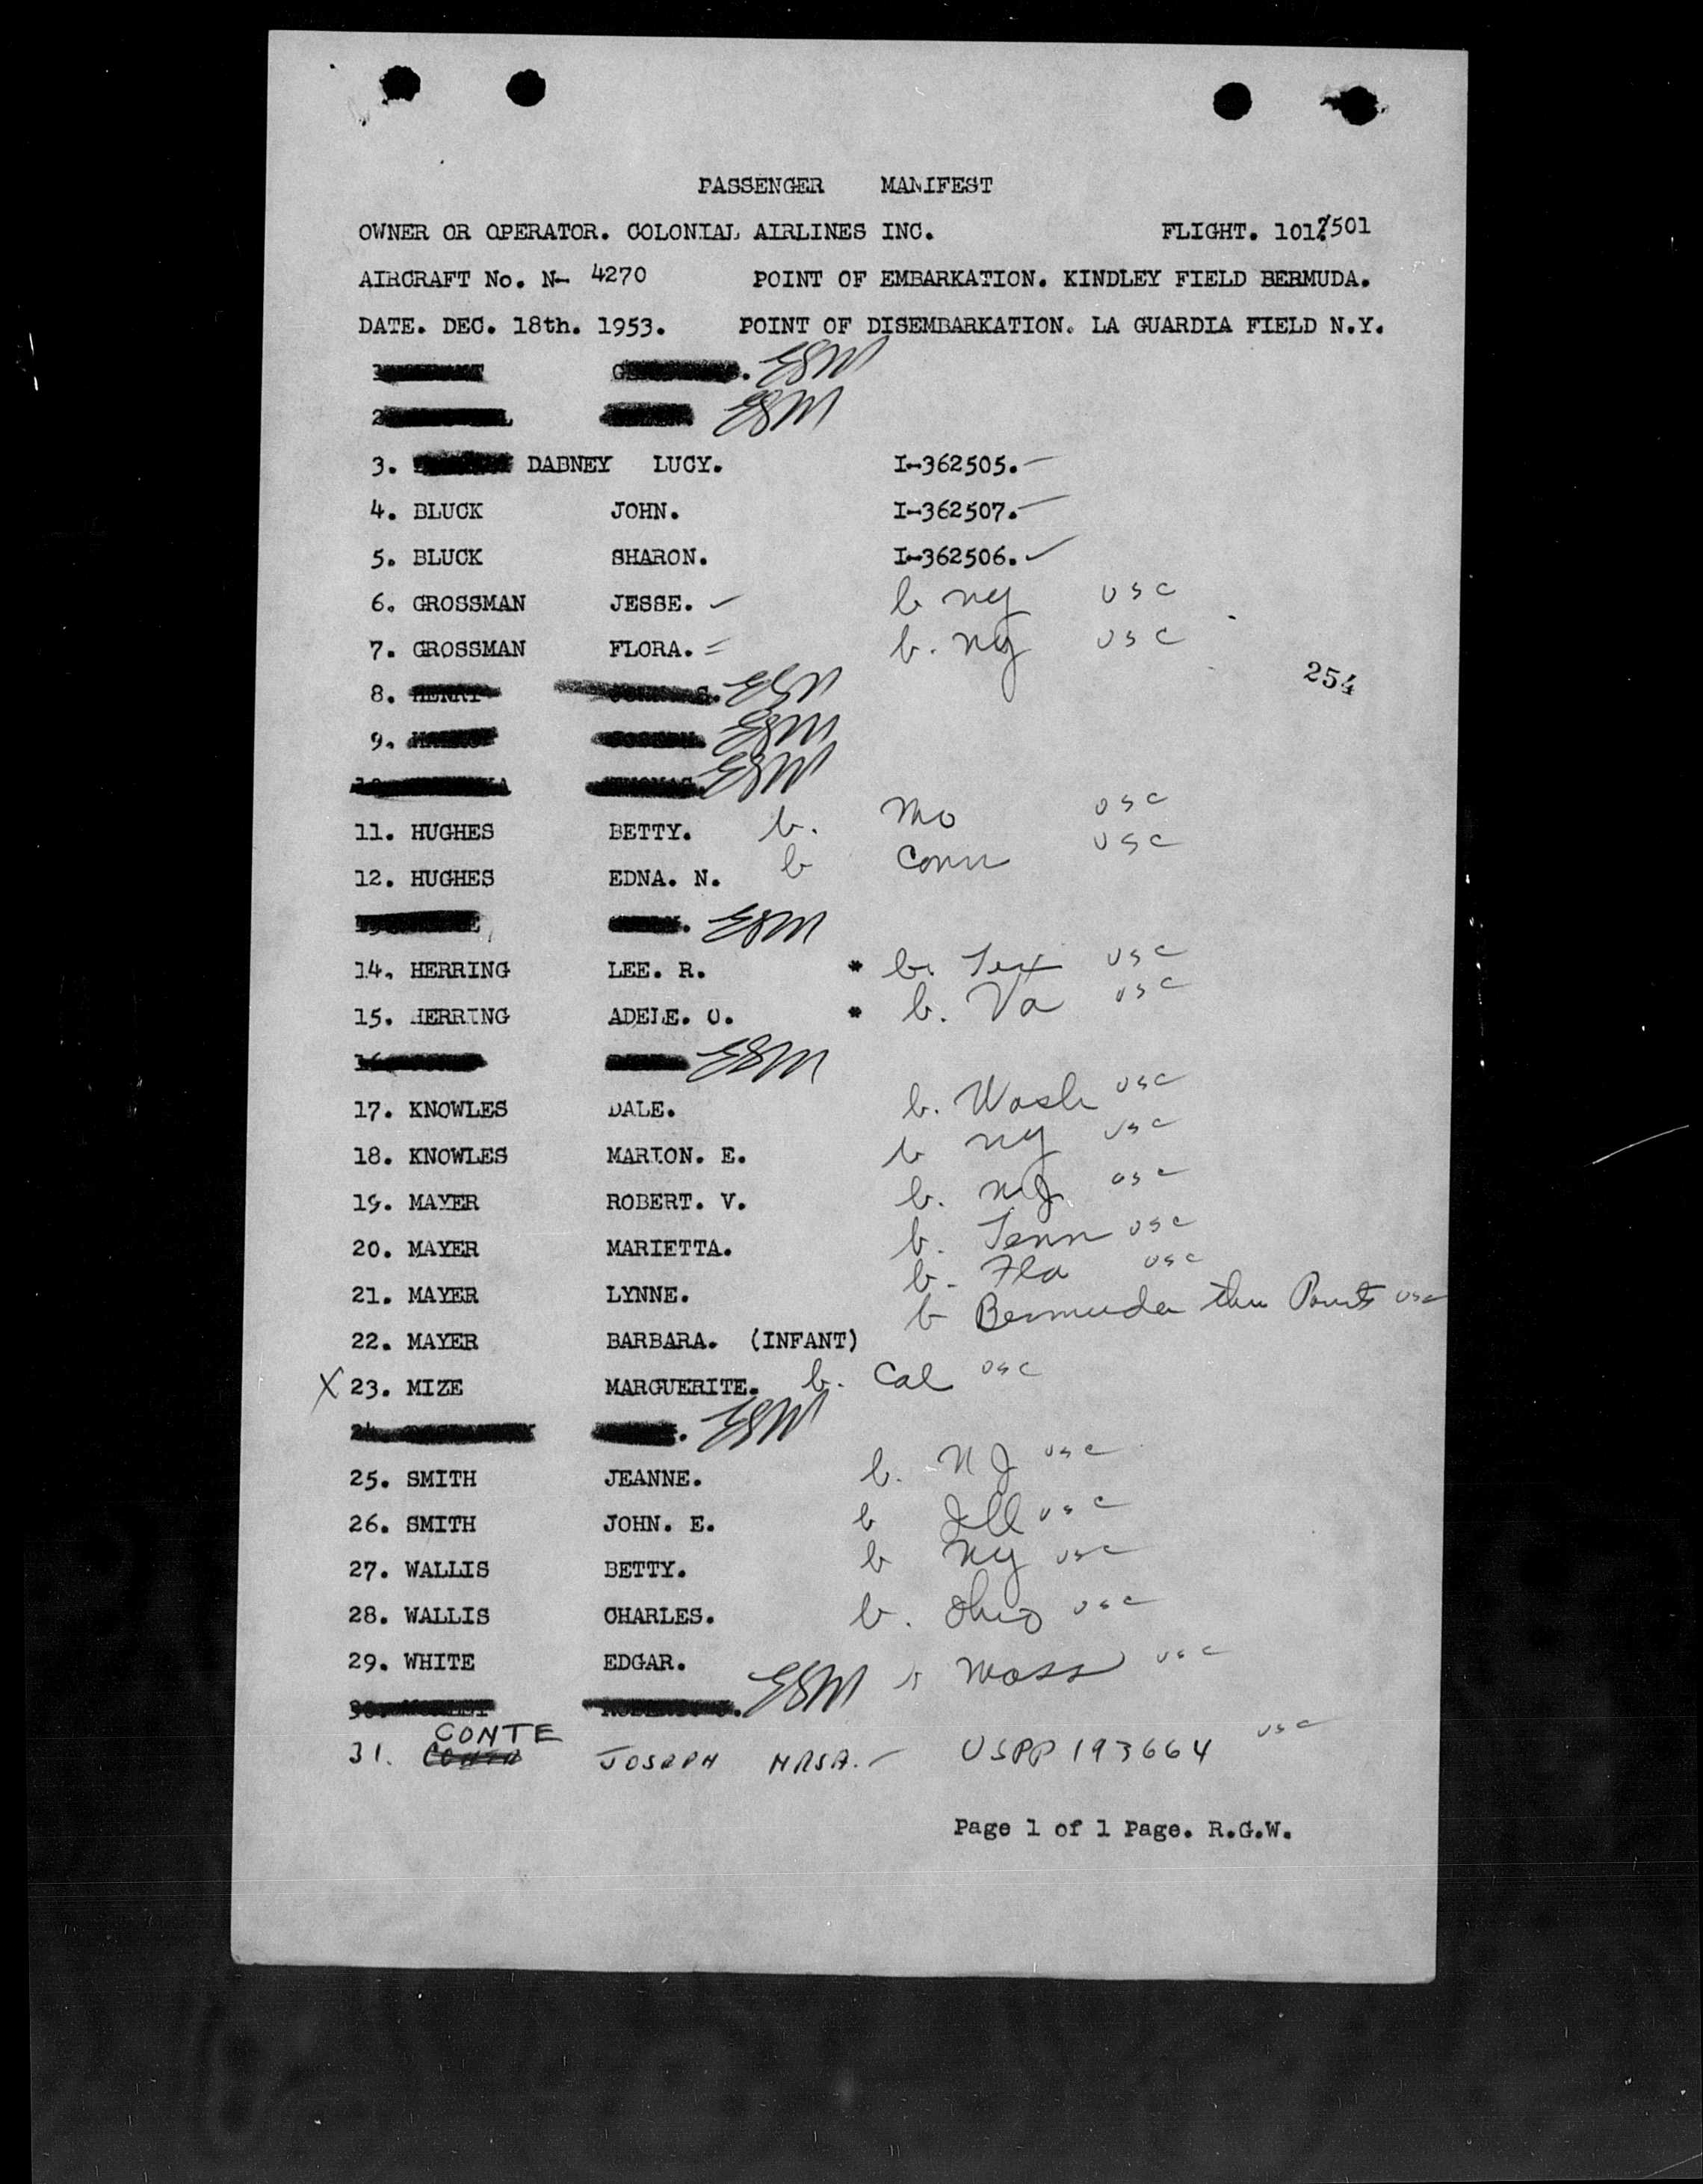 PASSENGER MANIFEST
OWNER OR OPERATOR. COLONIAL AIRLINES INC. FLIGHT. 1017501
AIRCRAFT No. N- 4270 POINT OF EMBARKATION. KINDLEY FIELD BERMUDA.
DATE. DEC. 18th. 1953. POINT OF DISEMBARKATION. LA GUARDIA FIELD N.Y.
ESM
ESM
3. DABNEY LUCY. I-362505.
4. BLUCK JOHN. I-362507.
5. BLUCK SHARON. I-362506.
6. GROSSMAN JESSE. b ny usc
7. GROSSMAN FLORA. b. ny usc
254
8. HENRY ESM
9. ESM
ESM
11. HUGHES BETTY. b. Mo usc
12. HUGHES EDNA. N. b Conn usc
ESM
14. HERRING LEE. R. * b. Tex usc
15. HERRING ADELE. O. * b. Va usc
ESM
17. KNOWLES DALE. b. Wash usc
18. KNOWLES MARION. E. b ny usc
19. MAYER ROBERT. V. b. NJ usc
20. MAYER MARIETTA. b. Tenn usc
21. MAYER LYNNE. b. Fla usc
22. MAYER BARBARA. (INFANT) b Bermuda thru Parents usc
X 23. MIZE MARGUERITE. b. Cal usc
ESM
25. SMITH JEANNE. b. NJ usc
26. SMITH JOHN. E. b Ill usc
27. WALLIS BETTY. b Ny usc
28. WALLIS CHARLES. b. Ohio usc
29. WHITE EDGAR. b Mass usc
ESM
31. CONTE JOSEPH USPP 193664 usc
Page 1 of 1 Page. R.G.W.